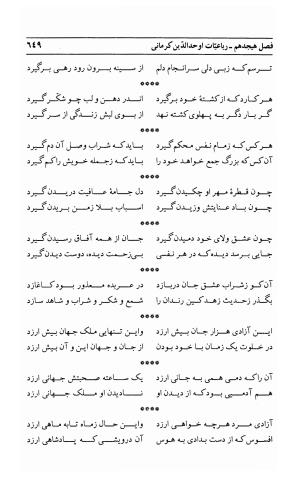 فصل هیجدهم ـ رباعیّات اوحدالدّین کرمانی ۶۴۹
ترسم که زبی دلی سرانجام دلم از سینه برون رود رهی برگیرد
****
هر کارد که از کشتهٔ خود برگیرد اندر دهن و لب چو شکّر گیرد
گر بار دگر به پهلوی کشته نهد از بوی لبش زندگی از سر گیرد
****
هر کس که زمام نفس محکم گیرد باید که شراب وصل آن دم گیرد
آن کس که بزرگ جمع خواهد خود را باید که زجمله خویش را کم گیرد
****
چون قطرهٔ مهر او چکیدن گیرد دل جامهٔ عافیت دریدن گیرد
چون باد عنایتش وزیدن گیرد اسباب بلا زمن بریدن گیرد
****
چون عشق ولای خود دمیدن گیرد جان از همه آفاق رسیدن گیرد
جایی برسد دیده که در هر نفسی بی‌زحمت دیده، دوست دیدن گیرد
****
آن کو زشراب عشق جان دربازد در عربده معذور بود کاغازد
بگذر زحدیث زهد کین رندان را شمع و شکر و شراب و شاهد سازد
****
این آزادی هزار جان بیش ارزد واین تنهایی ملک جهان بیش ارزد
در خلوت یک زمان با خود بودن از جان و جهان این و آن بیش ارزد
****
آن را که دمی همی به جانی ارزد یک ساعته صحبتش جهانی ارزد
هم آدمیی بود که از دیدن او نادیدن او ملک جهانی ارزد
****
آزادی مرد هرچه خواهی ارزد واین حال زماه تابه ماهی ارزد
افسوس که از دست بدادی به هوس آن درویشی که پادشاهی ارزد
****